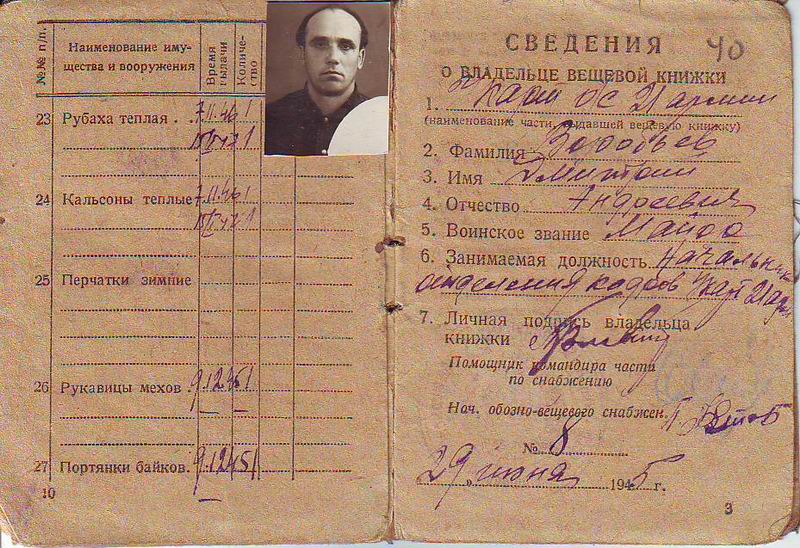 №№ п/п.
Наименование иму-
щества и вооружения
Время
выдачи
Количе-
ство
23 Рубаха теплая . 7.11.46 1
1
24 Кальсоны теплые 7.11.46 1
1
25 Перчатки зимние
26 Рукавицы мехов. 9.12.45 1
27 Портянки байков. 9.12.45 1
10
СВЕДЕНИЯ
40
О ВЛАДЕЛЬЦЕ ВЕЩЕВОЙ КНИЖКИ
1. ОС 21 армии
(наименование части, выдавшей вещевую книжку)
2. Фамилия
3. Имя Дмитрий
4. Отчество Андреевич
5. Воинское звание Майор
6. Занимаемая должность Начальник
отделения кадров 21 арм
7. Личная подпись владельца
книжки
Помощник командира части
по снабжению
Нач. обозно-вещевого снабжен.
№ 8
29 июня 1945 г.
3